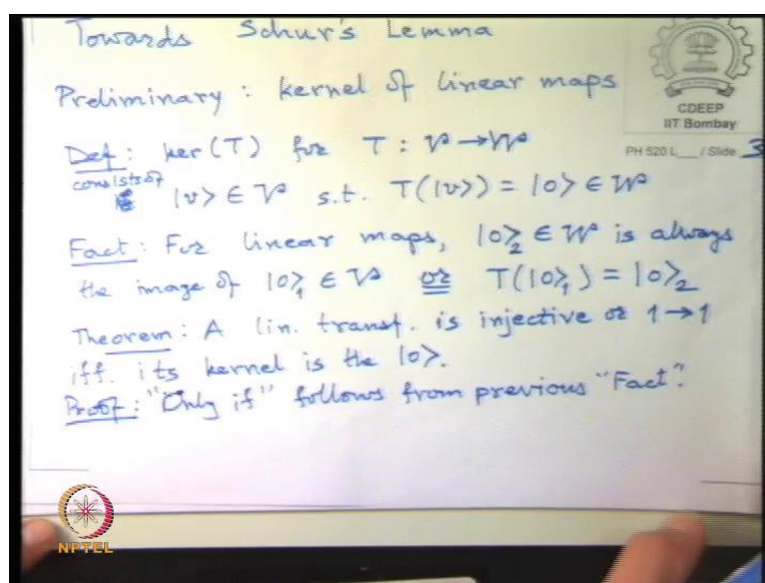 Towards Schur's Lemma
Preliminary : kernel of linear maps
CDEEP
IIT Bombay
PH 520 L___ / Slide 3
Def : ker (T) for T : V → W
consists of |v> ∈ V s.t. T(|v>) = |0> ∈ W
Fact : For linear maps, |0>₂ ∈ W is always
the image of |0>₁ ∈ V or T(|0>₁) = |0>₂
Theorem : A lin. transf. is injective or 1→1
iff. its kernel is the |0>.
Proof : "Only if" follows from previous "Fact".
NPTEL